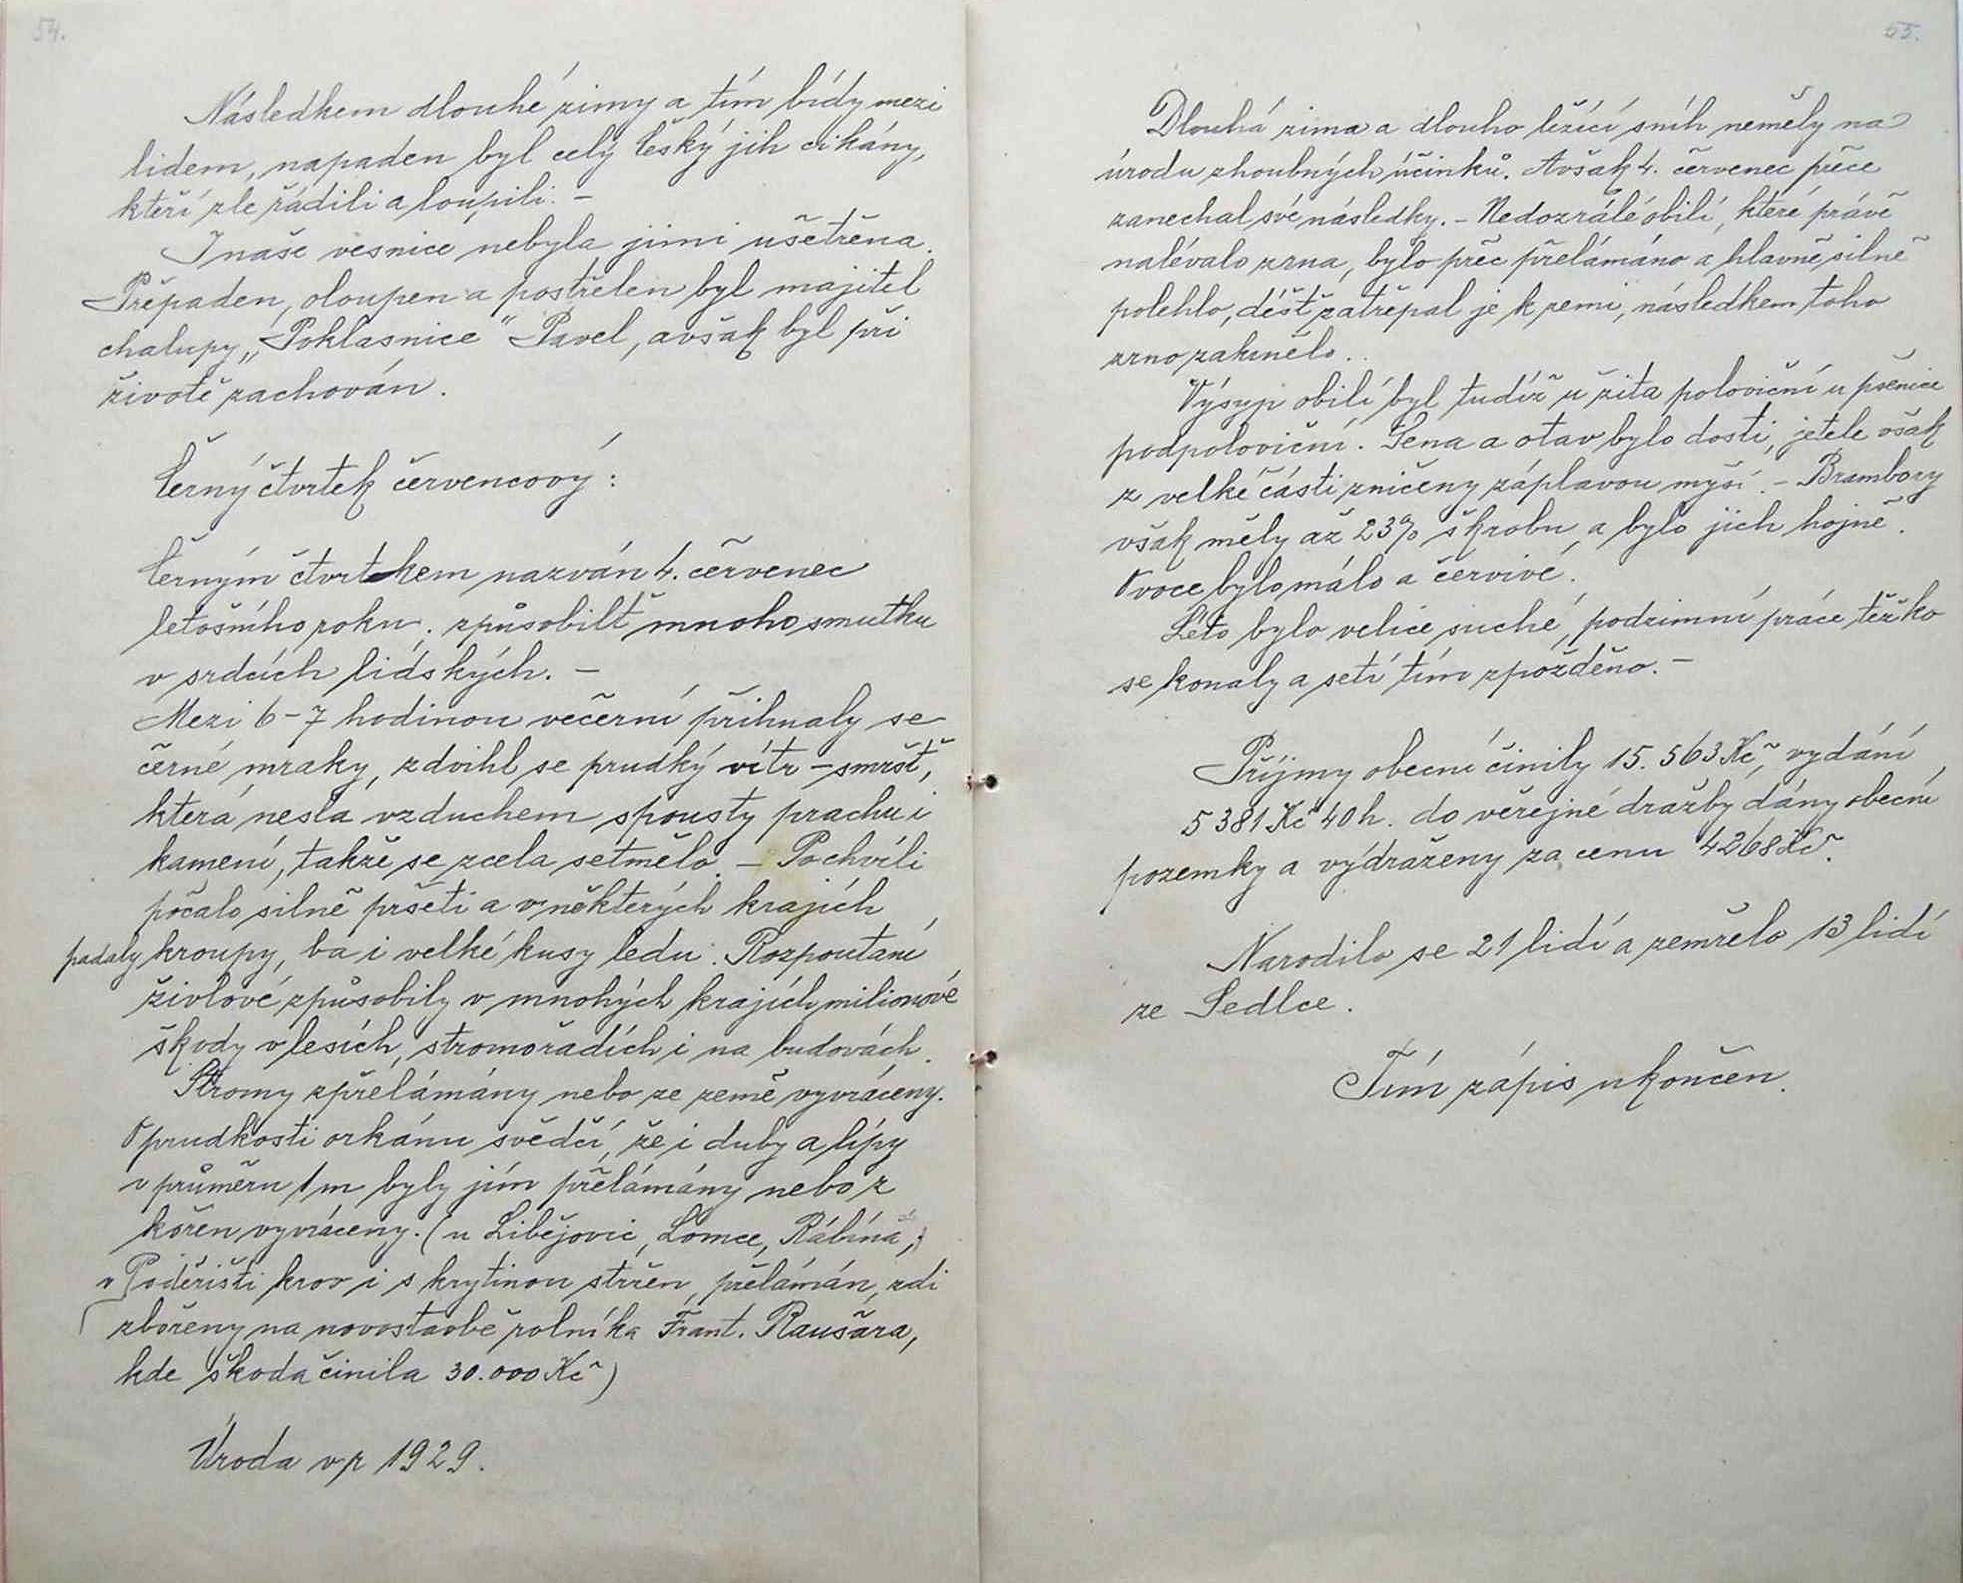 54.
Následkem dlouhé zimy a tím bídy mezi
lidem, napaden byl celý český jih cikány,
kteří zle řádili a loupili. –
I naše vesnice nebyla jimi ušetřena.
Přepaden, oloupen a postřelen byl majitel
chalupy „Poklasnice" Pavel, avšak byl při
životě zachován.
Černý čtvrtek červencový:
Černým čtvrtkem nazván 4. červenec
letošního roku. způsobilť mnoho smutku
v srdcích lidských. –
Mezi 6–7 hodinou večerní přihnaly se
černé mraky, zdvihl se prudký vítr – smršť,
která nesla vzduchem spousty prachu i
kamení, takže se zcela setmělo. – Pochvíli
počalo silně pršeti a v některých krajích
padaly kroupy, ba i velké kusy ledu. Rozpoutaní
živlové způsobily v mnohých krajích milionové
škody v lesích, stromořadích i na budovách.
Stromy zpřelámány nebo ze země vyvráceny.
O prudkosti orkánu svědčí, že i duby a lípy
v průměru 1 m byly jím přelámány nebo z
kořen vyvráceny. (u Libějovic, Lomce, Rábína,)
v Poděrišti krov i s krytinou stržen, přelámán, zdi
zbořeny na novostavbě rolníka Frant. Raušara,
kde škoda činila 30.000 Kč)
Úroda v r 1929.
55.
Dlouhá zima a dlouho ležící sníh neměly na
úrodu zhoubných účinků. Avšak 4. červenec přece
zanechal své následky. – Nedozrálé obilí, které právě
nalévalo zrna, bylo přec přelámáno a hlavně silně
polehlo, déšť zatřepal je k zemi, následkem toho
zrno zakrnělo..
Výsyp obilí byl tudíž u žita poloviční u pšenice
podpoloviční. Sena a otav bylo dosti, jetele však
z velké části zničeny záplavou myší. – Brambory
však měly až 23% škrobu a bylo jich hojně.
Ovoce bylo málo a červivé.
Léto bylo velice suché, podzimní práce těžko
se konaly a setí tím zpožděno. –
Příjmy obecní činily 15.563 Kč, vydání
5381 Kč 40 h. do veřejné dražby dány obecní
pozemky a vydraženy za cenu 4268 Kč.
Narodilo se 21 lidí a zemřelo 13 lidí
ze Sedlce.
Tím zápis ukončen.